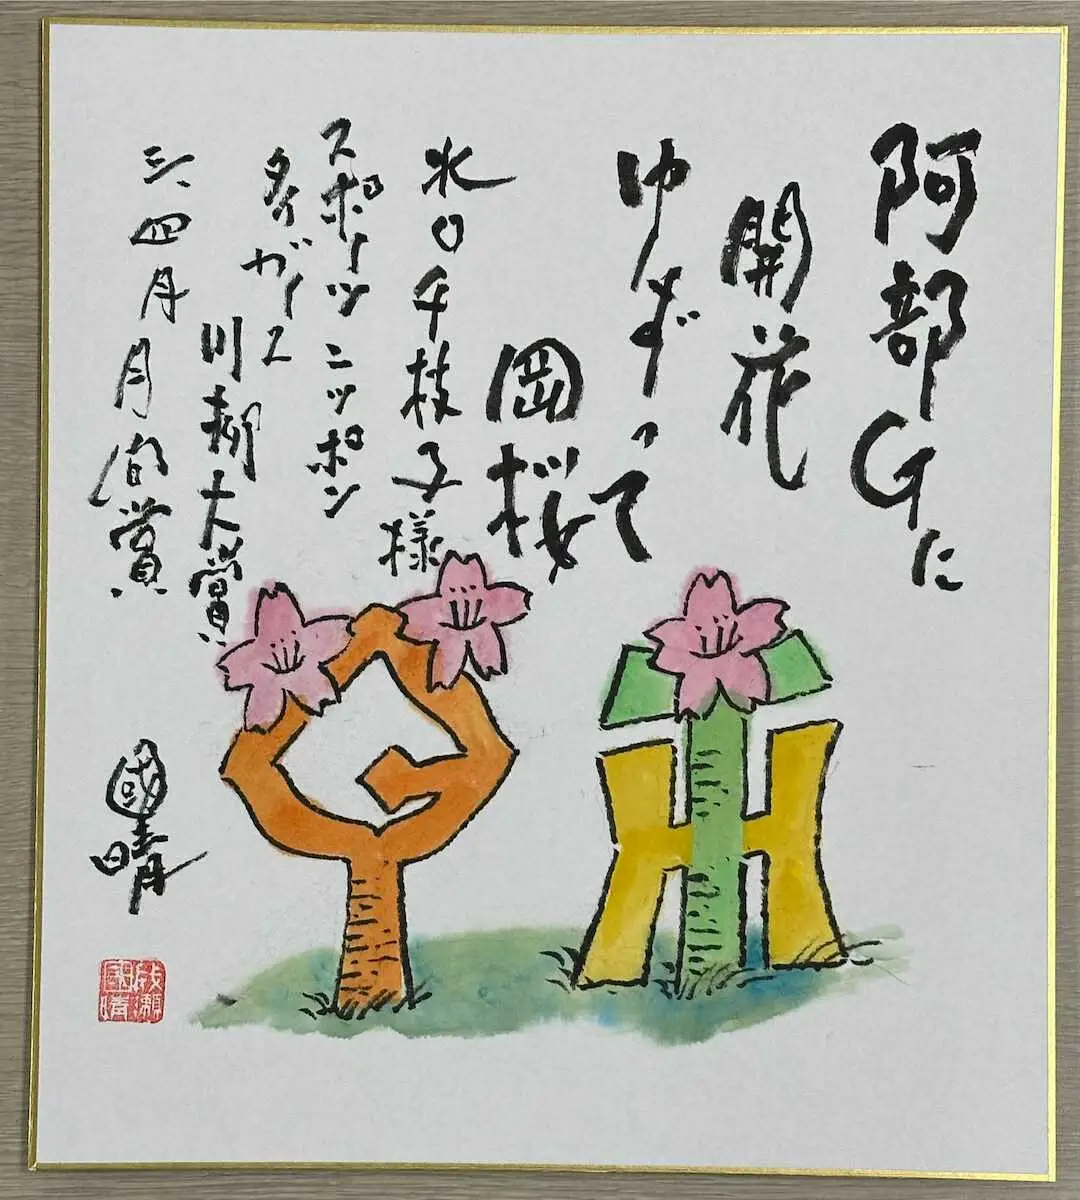 阿部Gに
開花
ゆずって
岡桜
水口千枝子様
スポーツニッポン
タイガース
川柳大賞
三、四月月間賞
國晴
成瀬
國晴